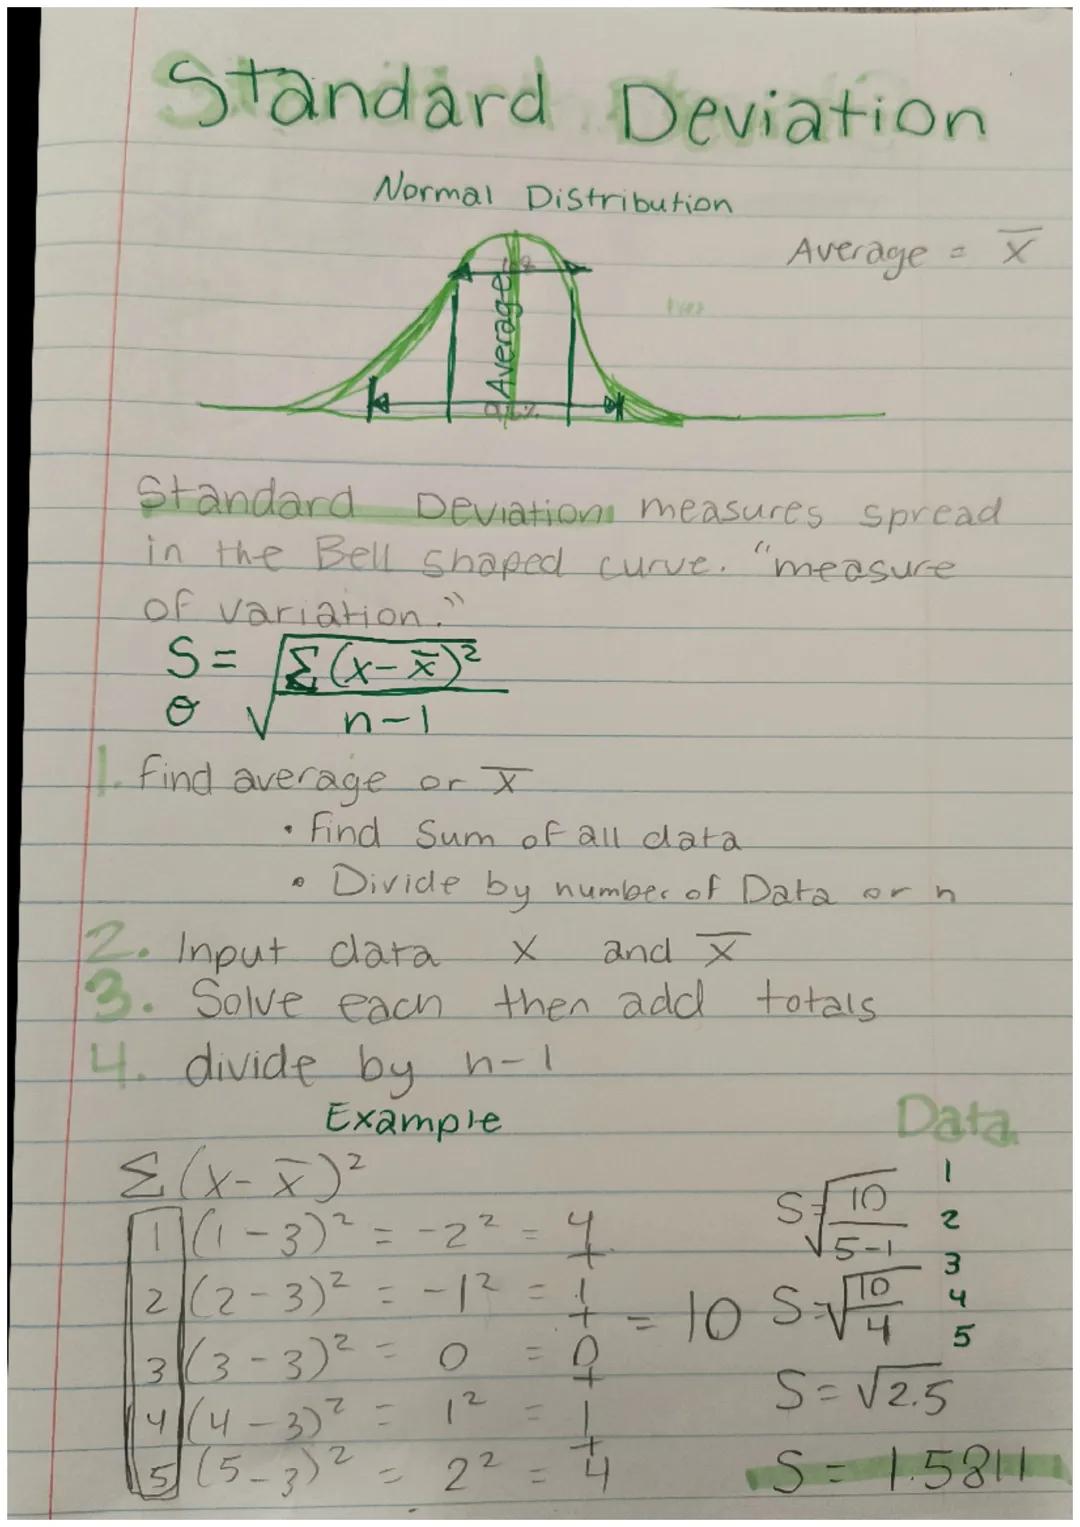 Standard Deviation
Normal Distribution
Average = x̅
Average
Standard Deviation measures spread
in the Bell shaped curve. "measure
of variation."
S = √(Σ(x-x̅)² / n-1)
σ
1. Find average or x̅
• Find Sum of all data
• Divide by number of Data or n
2. Input data x and x̅
3. Solve each then add totals
4. divide by n-1
Example
Data
Σ(x-x̅)²
1
1 (1-3)² = -2² = 4
+
S=√(10 / 5-1)
2
2 (2-3)² = -1² = 1
+
= 10
S=√(10 / 4)
3
4
5
3 (3-3)² = 0 = 0
+
S=√2.5
4 (4-3)² = 1² = 1
+
5 (5-3)² = 2² = 4
S = 1.5811